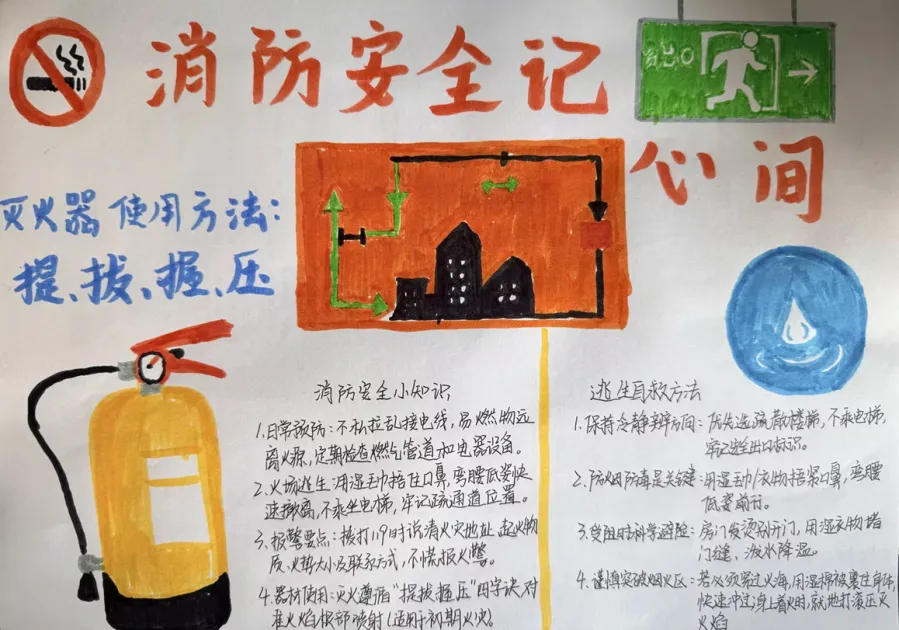 消防安全记
心间
灭火器使用方法：
提、拔、握、压
消防安全小知识
1.日常预防：不私拉乱接电线，易燃物远
离火源，定期检查燃气管道和电器设备。
2.火场逃生：用湿毛巾捂住口鼻，弯腰低姿快
速撤离，不乘坐电梯，牢记疏通道位置。
3.报警要点：拨打119时说清火灾地址、起火物
质、火势大小及联系方式，不慌报火警。
4.器材使用：灭火遵循“提拔握压”四字诀，对
准火焰根部喷射(适用于初期火灾)。
逃生自救方法
1.保持冷静辨方向：优先选疏散楼梯，不乘电梯，
牢记安全出口标识。
2.防烟防毒是关键：用湿毛巾/衣物捂紧口鼻，弯腰
低姿前行。
3.受阻时科学避险：房门发烫别开门，用湿衣物堵
门缝、泼水降温。
4.谨慎突破烟火区：若必须穿过火海，用湿棉被裹住身体，
快速冲过；身上着火时，就地打滚压灭
火焰